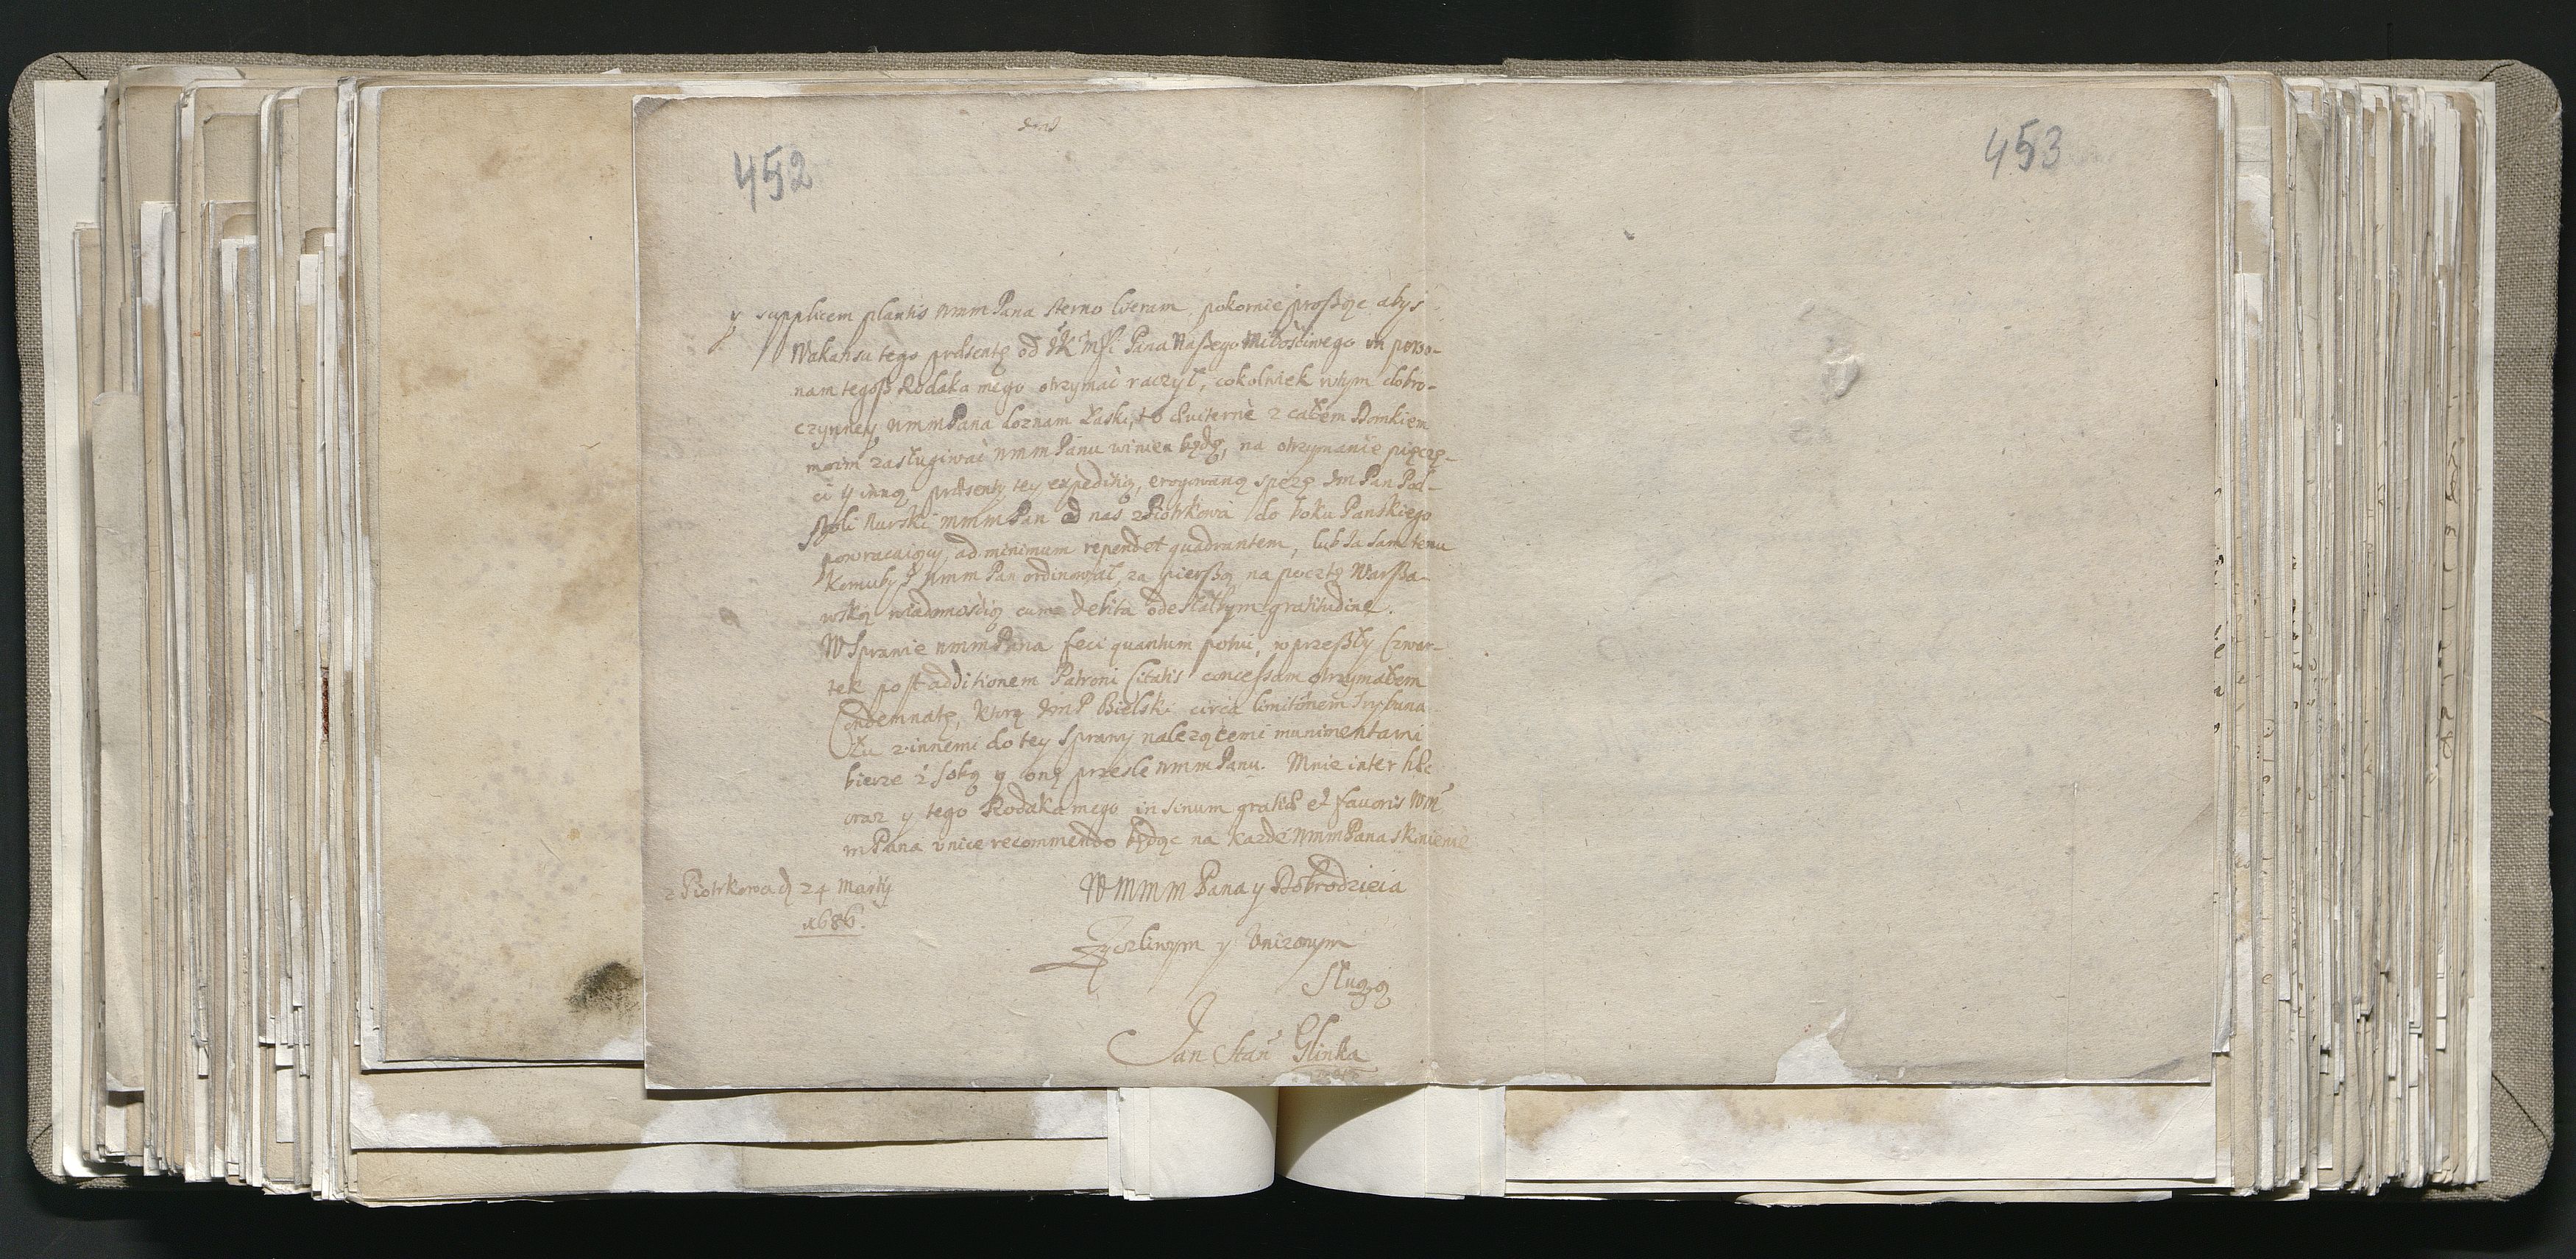 452
453
y supplicem plantis WMM Pana sterno liveram pokornie proßąc abyś
Wakansu tego præsentę od JK Mści Pana Naßego Miłościwego in perso-
nam tegoß Rodaka mego otrzymać raczył, cokolwiek w tym dobro-
czynney WMM Pana doznam Łaski, to æviternè z całem Domkiem
moim zasługiwać WMM Panu winien będę, na otrzymanie pieczę-
ci y inną præsenty tey expeditią, erogowaną spezę Jm Pan Pod-
stoli Nurski mmm Pan od nas z Piotrkowa do boku Pańskiego
powracaiący, ad minimum rependet quadrantem, lub Ja sam temu
Komuby WMM Pan ordinował, za pierßą na pocztę Warßa-
wską wiadomością cum debita odesłałbym gratitudine.
W Sprawie WMM Pana feci quantum potui, w przeßły Czwar-
tek post additionem Patroni Citatis concessam otrzymałem
Condemnatę, ktorą Jm P Bielski circa limitönem Trybuna
łu z innemi do tey Sprawy należącemi munimentami
bierze z sobą y oną przesle WMM Panu. Mnie inter hæc
oraz y tego Rodaka mego in sinum gratiæ et favoris Wm
m Pana unice recommendo będąc na każde WMM Pana skinienie
z Piotrkowa d 24 Martij
1686.
WMMM Pana y Dobrodzieia
Zyczliwym y Unizonym
Sługą
Jan Stan Glinka